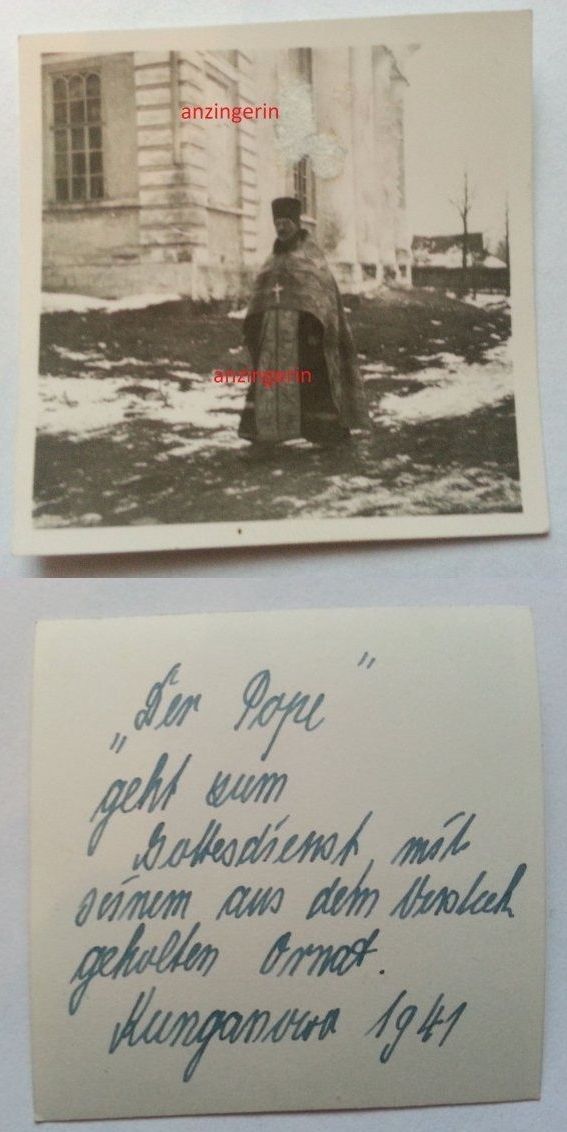 anzingerin
anzingerin
„Der Pope"
geht zum
Gottesdienst, mit
seinem aus dem Versteck
geholten Ornat.
Kunganowo 1941